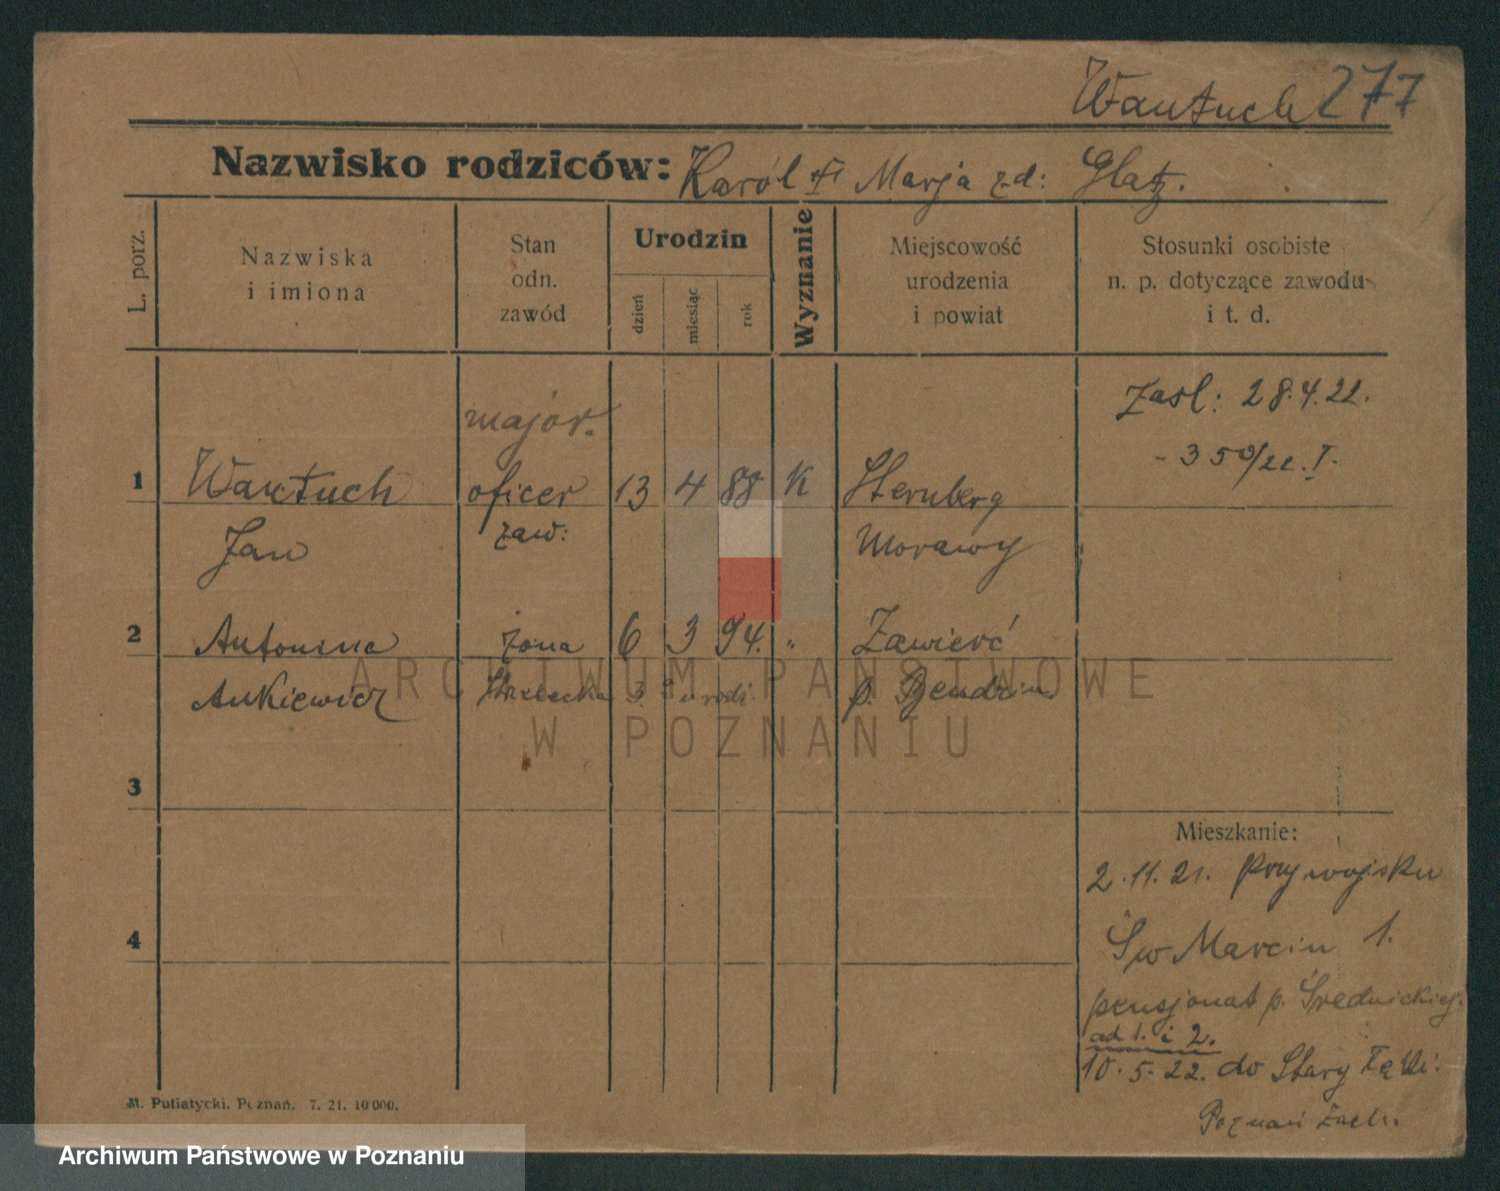 Wantuch 277
Nazwisko rodziców: Karól Marja z.d: Glatz.
L. porz.
Nazwiska
i imiona
Stan
odn.
zawód
Urodzin
dzień
miesiąc
rok
Wyznanie
Miejscowość
urodzenia
i powiat
Stosunki osobiste
n. p. dotyczące zawodu
i t. d.
Zasl: 28.4.21.
major.
1 Wantuch oficer 13 4 88 K Sternberg
Jan zaw: Morawy
2 Antonina żona 6 3 94. " Zawierć
Ankiewicz p. Bendzin
3
4
Mieszkanie:
2.11.21. Przy wojsku
Św Marcin 1.
pensjonat p. Średnickiej.
ad 1. i 2.
10.5.22. do Stary
Poznań Zach.
M. Putiatycki. Poznań. 7. 21. 10 000.
ARCHIWUM PAŃSTWOWE
W POZNANIU
Archiwum Państwowe w Poznaniu